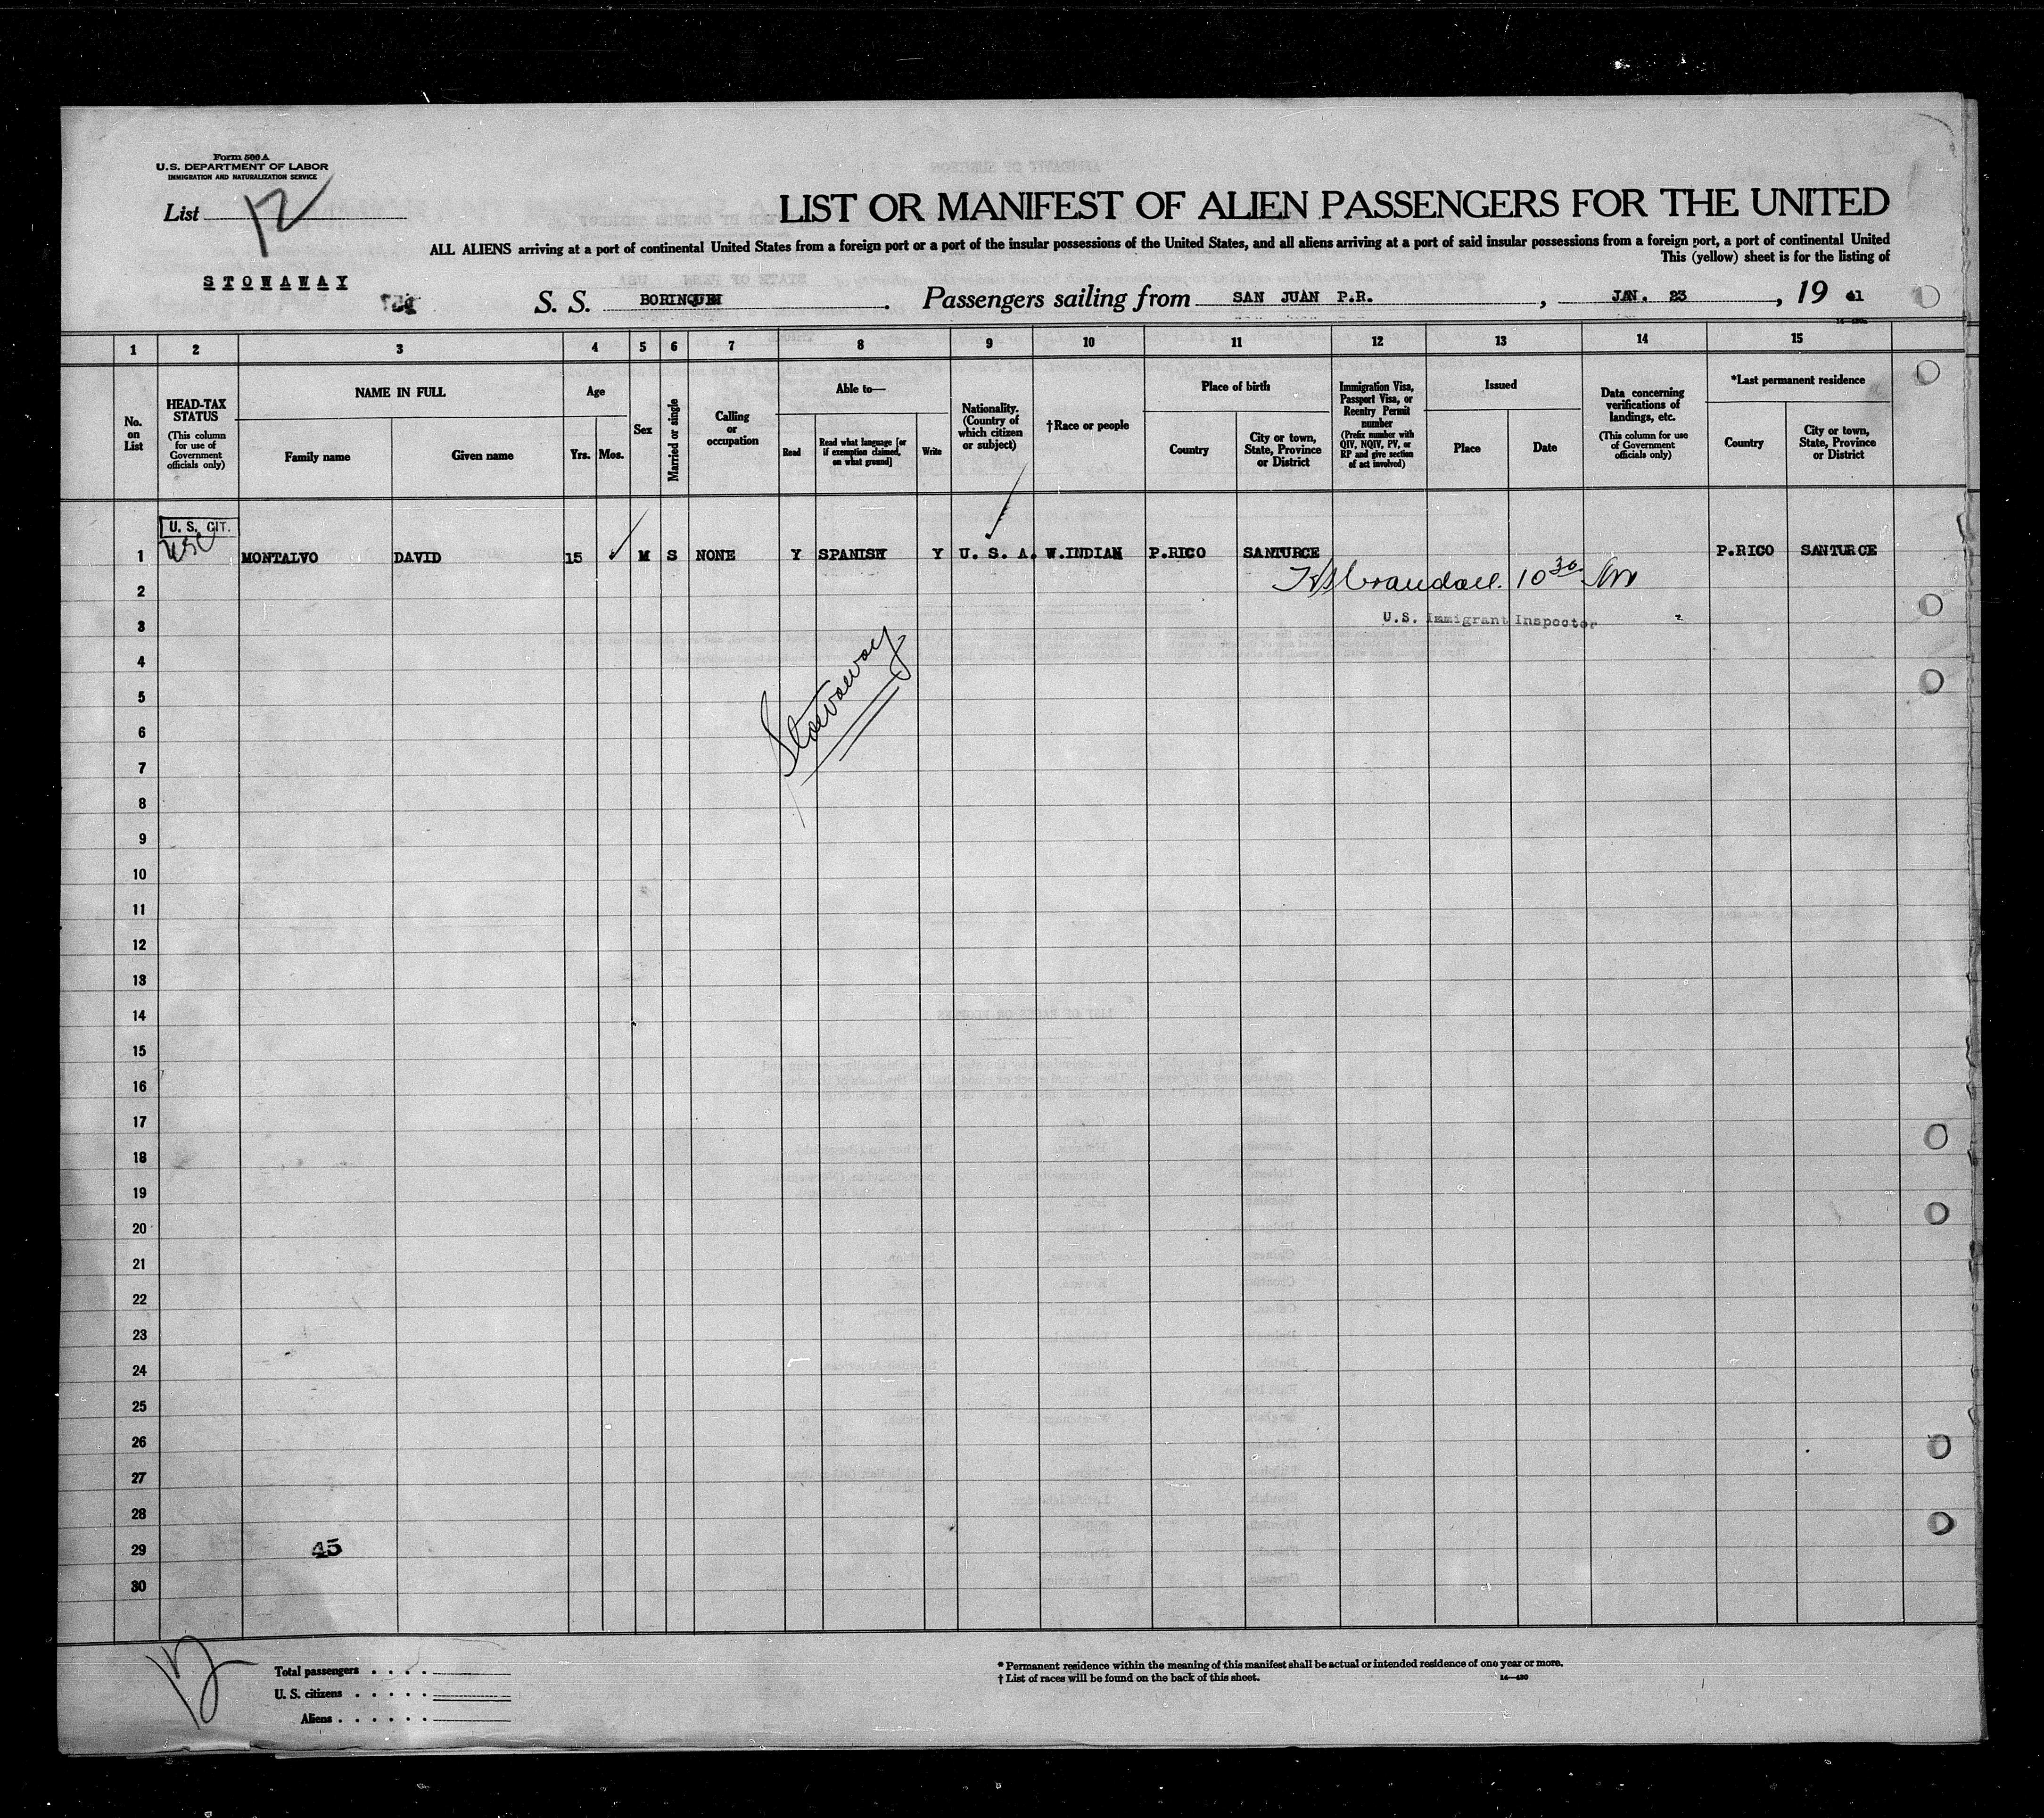 Form 500 A
U.S. DEPARTMENT OF LABOR
IMMIGRATION AND NATURALIZATION SERVICE
List 12
LIST OR MANIFEST OF ALIEN PASSENGERS FOR THE UNITED
ALL ALIENS arriving at a port of continental United States from a foreign port or a port of the insular possessions of the United States, and all aliens arriving at a port of said insular possessions from a foreign port, a port of continental United
This (yellow) sheet is for the listing of
STOWAWAY
S. S. BORINQUEN. Passengers sailing from SAN JUAN P.R., JAN. 23, 19 41
1 2 3 4 5 6 7 8 9 10 11 12 13 14 15
No. on List
HEAD-TAX STATUS
(This column for use of Government officials only)
NAME IN FULL
Family name
Given name
Age
Yrs.
Mos.
Sex
Married or single
Calling or occupation
Able to—
Read
Read what language [or if exemption claimed, on what ground]
Write
Nationality. (Country of which citizen or subject)
†Race or people
Place of birth
Country
City or town, State, Province or District
Immigration Visa, Passport Visa, or Reentry Permit number
(Prefix number with QIV, NQIV, PV, or RP and give section of act involved)
Issued
Place
Date
Data concerning verifications of landings, etc.
(This column for use of Government officials only)
*Last permanent residence
Country
City or town, State, Province or District
U. S. CIT.
USC
1 MONTALVO DAVID 15 M S NONE Y SPANISH Y U. S. A. W.INDIAN P.RICO SANTURCE P.RICO SANTURCE
2 Crandall 10 30
3 U.S. Immigrant Inspector
4
Stowaway
5
6
7
8
9
10
11
12
13
14
15
16
17
18
19
20
21
22
23
24
25
26
27
28
29 45
30
12
Total passengers . . . .
U. S. citizens . . . . .
Aliens . . . . . .
* Permanent residence within the meaning of this manifest shall be actual or intended residence of one year or more.
† List of races will be found on the back of this sheet.
14—430